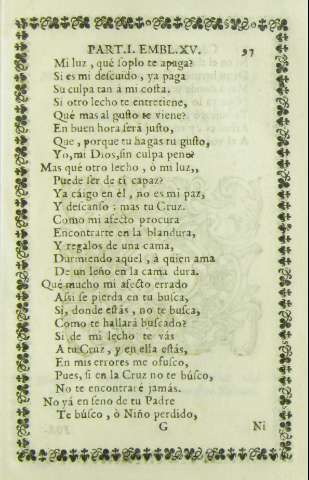 PART.I. EMBL.XV. 97
Mi luz, què ſoplo te apuga?
Si es mi deſcuido, ya paga
Su culpa tan à mi coſta.
Si otro lecho te entretiene,
Què mas al guſto te viene?
En buen hora ſerà juſto,
Que, porque tu hagas tu guſto,
Yo, mi Dios, ſin culpa pene?
Mas què otro lecho, ò mi luz,,
Puede ſer de tì capaz?
Ya càigo en èl, no es mi paz,
Y deſcanſo: mas tu Cruz.
Como mi afecto procura
Encontrarte en la blandura,
Y regalos de una cama,
Durmiendo aquel, à quien ama
De un leño en la cama dura.
Què mucho mi afecto errado
Aſsi ſe pierda en tu buſca,
Si, donde eſtàs, no te buſca,
Como te hallarà buſcado?
Si de mi lecho te vàs
A tu Cruz, y en ella eſtàs,
En mis errores me ofuſco,
Pues, ſi en la Cruz no te bùſco,
No te encontrarè jamàs.
No yà en ſeno de tu Padre
Te bùſco, ò Niño perdido,
G Ni